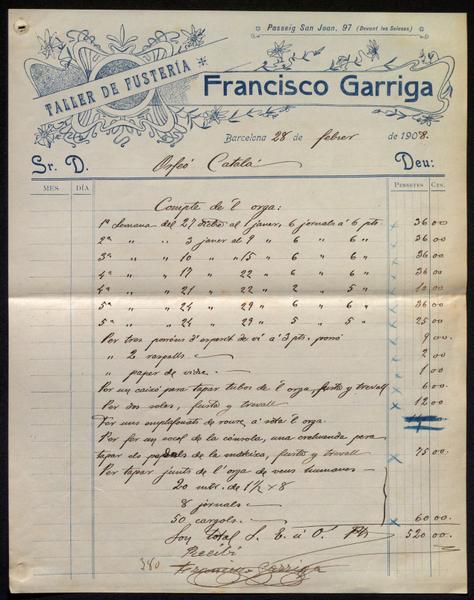 Passeig San Joan, 97 (Devant les Saleses)
TALLER DE FUSTERÍA
Francisco Garriga
Barcelona 28 de febrer de 1908.
Sr. D. Orfeó Catalá Deu:
MES DÍA PESSETES CTS.
Compte de l'orga:
1ª semana del 27 dicbre al 1 janer, 6 jornals á 6 pts. 36 00
2ª " " 3 janer al 9 " 6 " 6 " 36 00
3ª " " 10 " " 15 " 6 " 6 " 36 00
4ª " " 17 " 22 " 6 " 6 " 36 00
4ª " " 21 " 22 " 2 " 5 " 10 00
5ª " " 24 " 29 " 6 " 6 " 36 00
5ª " " 24 " 29 " 5 " 5 " 25 00
Per tres poróns d'esperit de vi á 3 pts. poró 9 00
" 2 raspalls 2 00
" paper de vidre 1 00
Per un caixó para tapar tubos de l'orga, fusta y trevall 6 00
Per dos soles, fusta y trevall 12 00
Per uns emplafonats de roure á sota l'orga
Per fer un socol de la consola, una
tapar els de la fusta y trevall 75 00
Per tapar junts de l'orga de veus humanes
20 mtl. de 1½ × 8
8 jornals
50 cargols. 60 00
Son total S. E. ú O. Pts 520 00.
Recibí
380 Francisco Garriga